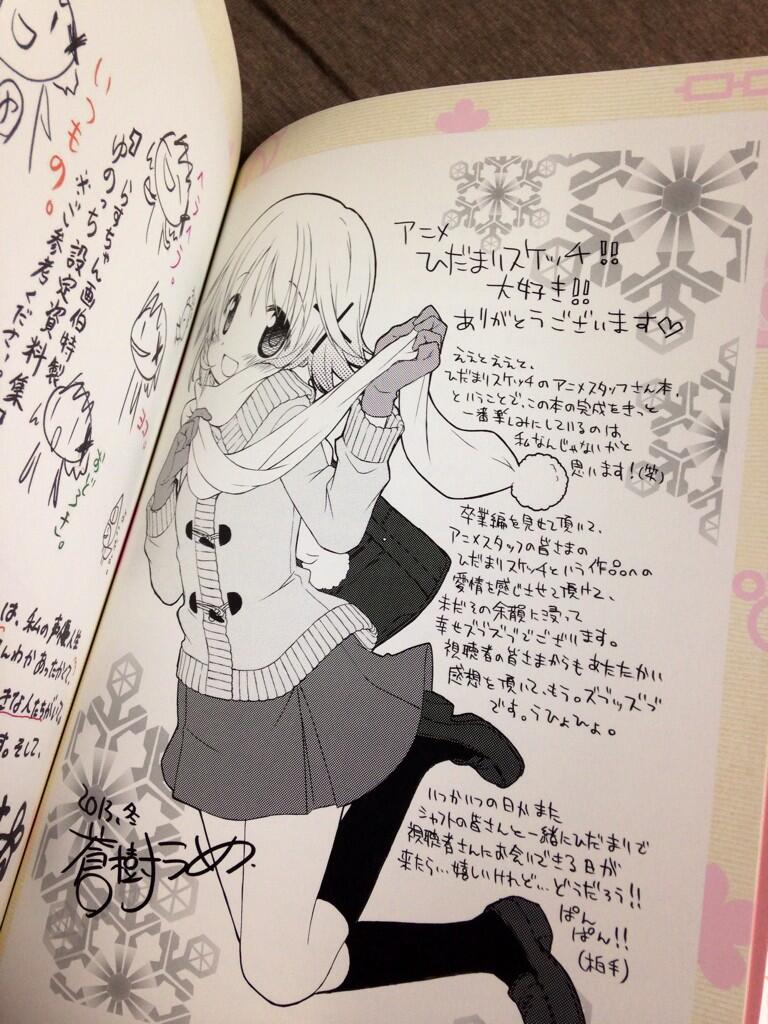 アニメ
ひだまりスケッチ!!
大好き!!
ありがとうございます♡
ええとええと、
ひだまりスケッチのアニメスタッフさん本、
ということで、この本の完成をきっと
一番楽しみにしているのは
私なんじゃないかと
思います!(笑)
卒業編を見せて頂いて、
アニメスタッフの皆さまの
ひだまりスケッチという作品への
愛情を感じさせて頂けて、
未だその余韻に浸って
幸せズブズブでございます。
視聴者の皆さまからもあたたかい
感想を頂いて、もう。ズブッズブ
です。うひょひょ。
いつかいつの日かまた
シャフトの皆さんと一緒にひだまりで
視聴者さんにお会いできる日が
来たら…嬉しいけれど…どうだろう!!
ぱん
ぱん!!
(柏手)
2013.冬
蒼樹うめ.
いつもの。
らすちゃん画伯特製
ゆのっち 設定資料集』
※ご参考ください。
は、私の声優人生
んわかあったかくて、
きな人たちがいて。
す。そして、